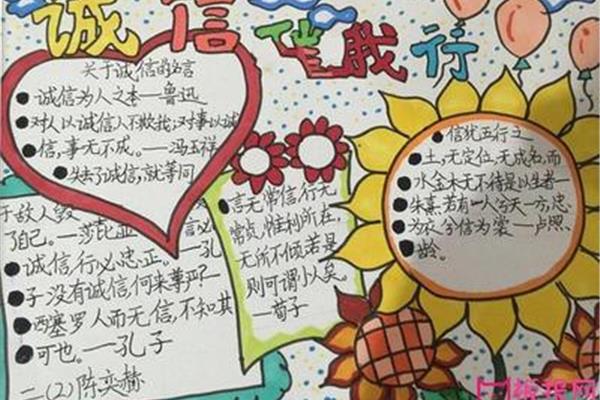 诚信伴我行
关于诚信的名言
诚信为人之本—鲁迅
对人以诚信人不欺我;对事以诚
信,事无不成。—冯玉祥
失去了诚信,就等同
于敌人毁
了自己。—莎
诚信,行必忠正。—孔
子没有诚信,何来尊严?—
西塞罗 人而无信,不知其
可也。—孔子
二(2)陈奕赫
言无常信,行无
常贞,惟利所在,
无所不倾,若是
则可谓小人矣。
—荀子
信犹五行之
土,无定位,无成名,而
水金木无不待是以生者—
朱熹。若有一人兮天一方,忠
为衣兮信为裳—卢照
龄。